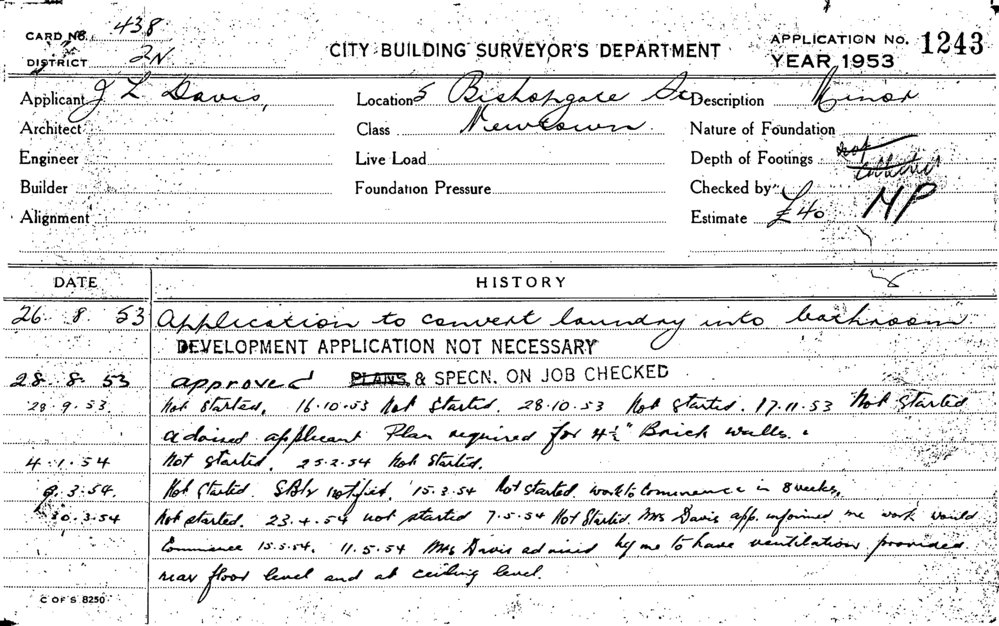 CARD No. 438
DISTRICT 2N
CITY BUILDING SURVEYOR'S DEPARTMENT
APPLICATION No. 1243
YEAR 1953
Applicant J L Davis,
Location 5 Bishopgate St
Description Minor
Architect
Class Newtown
Nature of Foundation
Engineer
Live Load
Depth of Footings not
Builder
Foundation Pressure
Checked by MP
Alignment
Estimate £40
DATE HISTORY
26. 8. 53 Application to convert laundry into bathroom.
DEVELOPMENT APPLICATION NOT NECESSARY
28. 8. 53 approved PLANS & SPECN. ON JOB CHECKED
28.9.53. Not started. 16.10.53 Not started. 28.10.53 Not started. 17.11.53 Not started
advised applicant Plan required for 4½" Brick walls.
4.1.54 Not started. 25.2.54 Not started.
9.3.54. Not started. notified. 15.3.54 Not started. work to commence in 8 weeks.
30.3.54 Not started. 23.4.54 not started 7.5.54 Not Started. Mrs Davis app. informed me work would
Commence 15.5.54. 11.5.54 Mrs Davis advised by me to have ventilation provided
near floor level and at ceiling level.
C OF S 8250